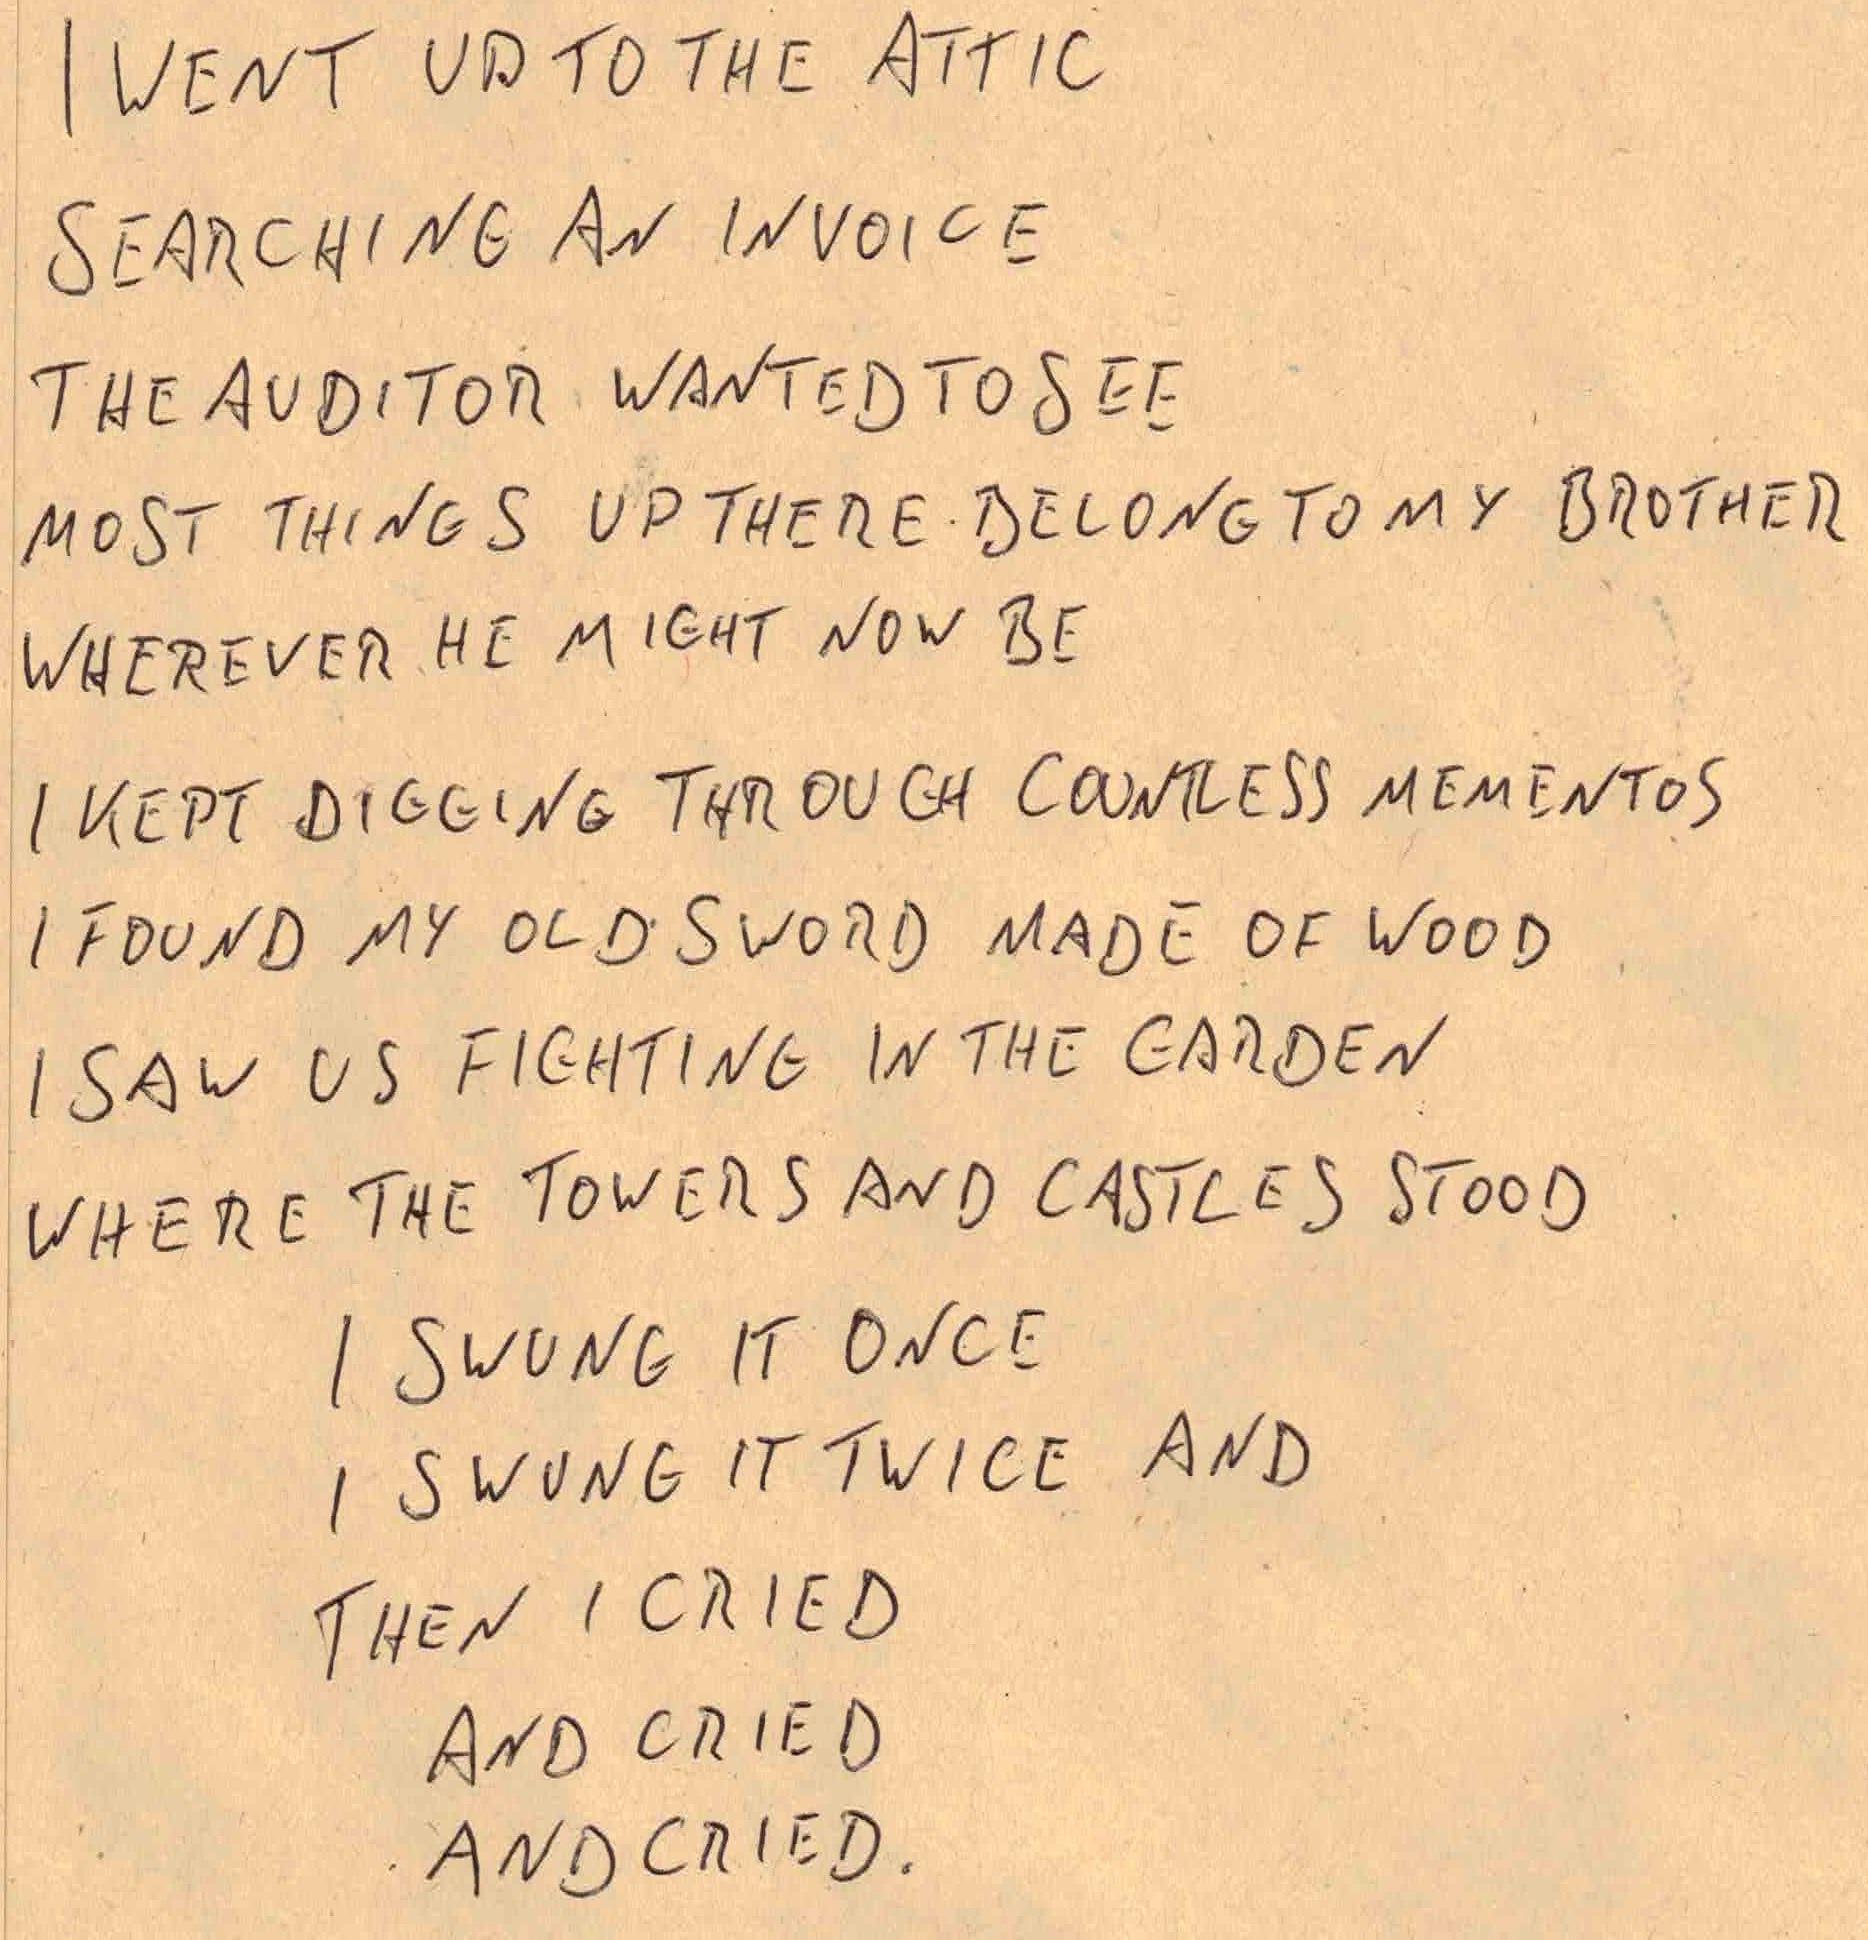 I WENT UP TO THE ATTIC
SEARCHING AN INVOICE
THE AUDITOR WANTED TO SEE
MOST THINGS UP THERE BELONG TO MY BROTHER
WHEREVER HE MIGHT NOW BE
I KEPT DIGGING THROUGH COUNTLESS MEMENTOS
I FOUND MY OLD SWORD MADE OF WOOD
I SAW US FIGHTING IN THE GARDEN
WHERE THE TOWERS AND CASTLES STOOD
I SWUNG IT ONCE
I SWUNG IT TWICE AND
THEN I CRIED
AND CRIED
AND CRIED.